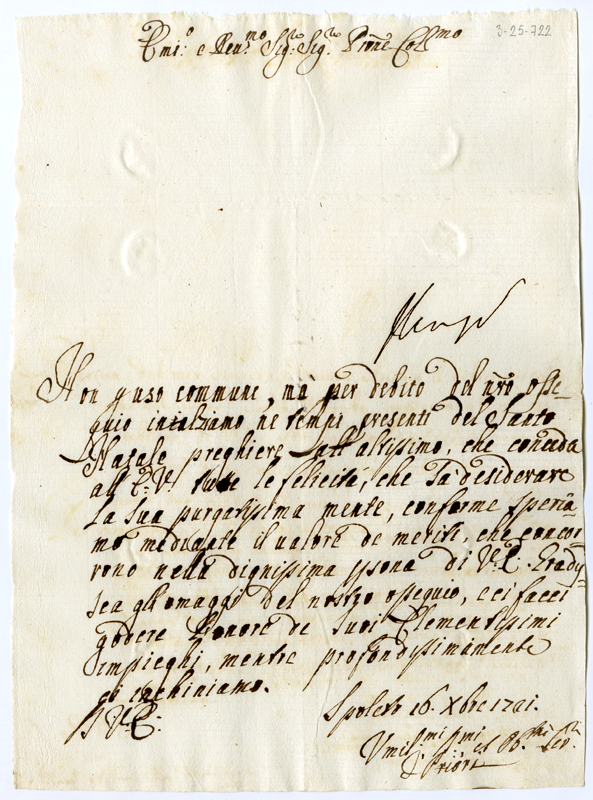 Emi.o e Reu.mo Sig.re Sig.re Prone Coll.mo
3-25-722
Non p uso commune, mà per debito del nrõ osse-
quio inalziamo ne tempi presenti del Santo
Natale preghiere all'altissimo, che conceda
all' E.V. tutte le felicità, che sà desiderare
la sua purgatissima mente, conforme speria
mo mediante il ualore de meriti, che concor
rono nella dignissima psona di V.E. Gradi-
sca gli omaggi del nostro ossequio, e ci facci
godere l'honore de suoi Clementissimi
impieghi, mentre profondissimamente
ci inchiniamo.
D V.E.
Spoleto 16. Xbre 1721.
Vmil.mi mi et Ob.mi Ser.ri
Priori